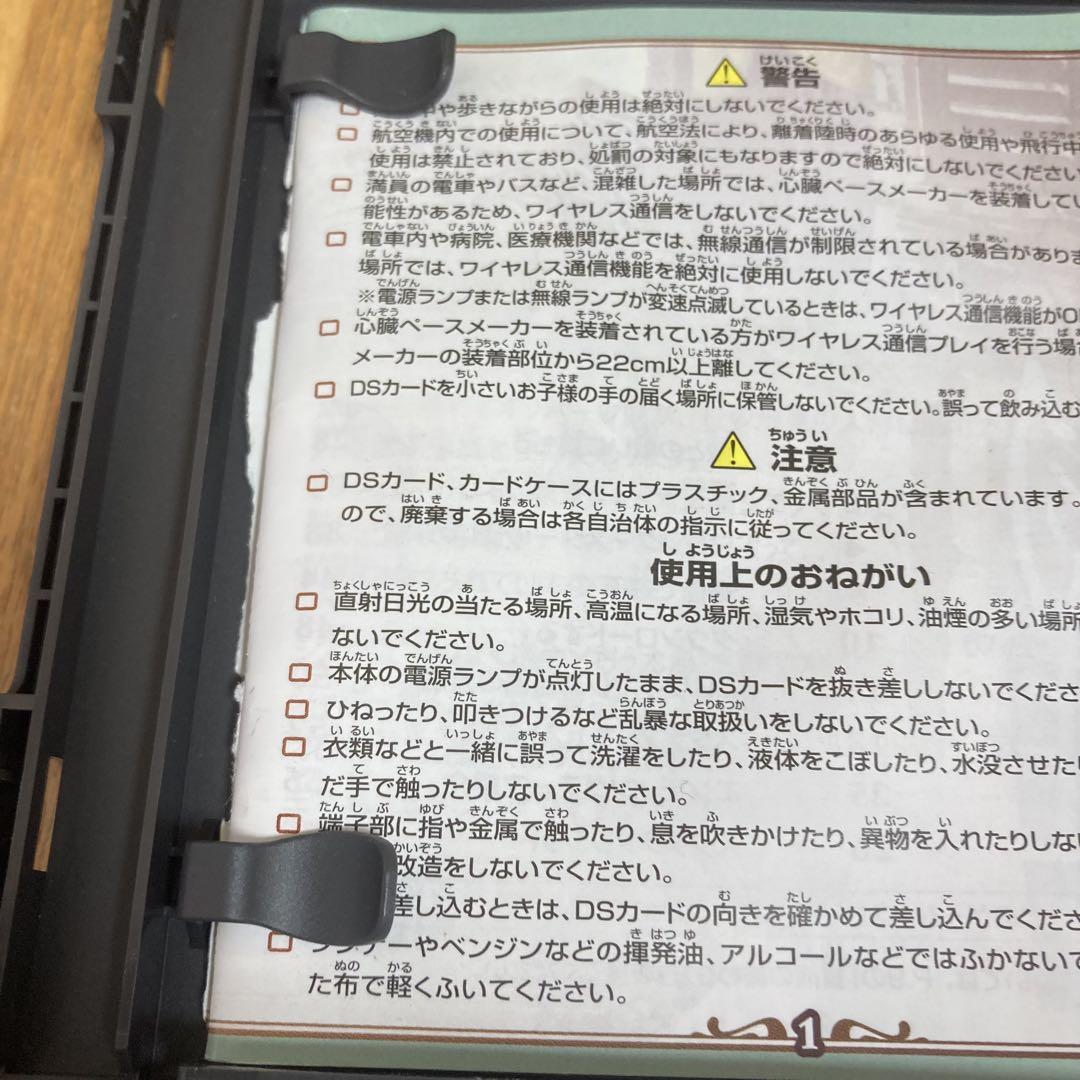 警告
や歩きながらの使用は絶対にしないでください。
航空機内での使用について、航空法により、離着陸時のあらゆる使用や飛行中
使用は禁止されており、処罰の対象にもなりますので絶対にしないでください
満員の電車やバスなど、混雑した場所では、心臓ペースメーカーを装着してい
能性があるため、ワイヤレス通信をしないでください。
電車内や病院、医療機関などでは、無線通信が制限されている場合がありま
場所では、ワイヤレス通信機能を絶対に使用しないでください。
※電源ランプまたは無線ランプが変速点滅しているときは、ワイヤレス通信機能がO
心臓ペースメーカーを装着されている方がワイヤレス通信プレイを行う場合
メーカーの装着部位から22cm以上離してください。
DSカードを小さいお子様の手の届く場所に保管しないでください。誤って飲み込む
注意
DSカード、カードケースにはプラスチック、金属部品が含まれています。
ので、廃棄する場合は各自治体の指示に従ってください。
使用上のおねがい
直射日光の当たる場所、高温になる場所、湿気やホコリ、油煙の多い場所
ないでください。
本体の電源ランプが点灯したまま、DSカードを抜き差ししないでくださ
ひねったり、叩きつけるなど乱暴な取扱いをしないでください。
衣類などと一緒に誤って洗濯をしたり、液体をこぼしたり、水没させたり
だ手で触ったりしないでください。
端子部に指や金属で触ったり、息を吹きかけたり、異物を入れたりしない
改造をしないでください。
差し込むときは、DSカードの向きを確かめて差し込んでくださ
シンナーやベンジンなどの揮発油、アルコールなどではふかないで
た布で軽くふいてください。
1